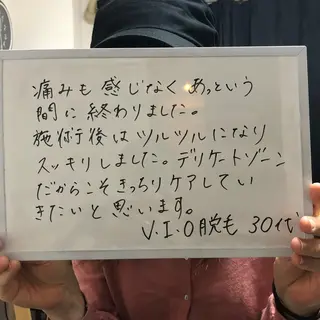 痛みも感じなくあっという
間に終わりました。
施術後はツルツルになり
スッキリしました。デリケートゾーン
だからこそきっちりケアしてい
きたいと思います。
V.I.O脱毛 30代